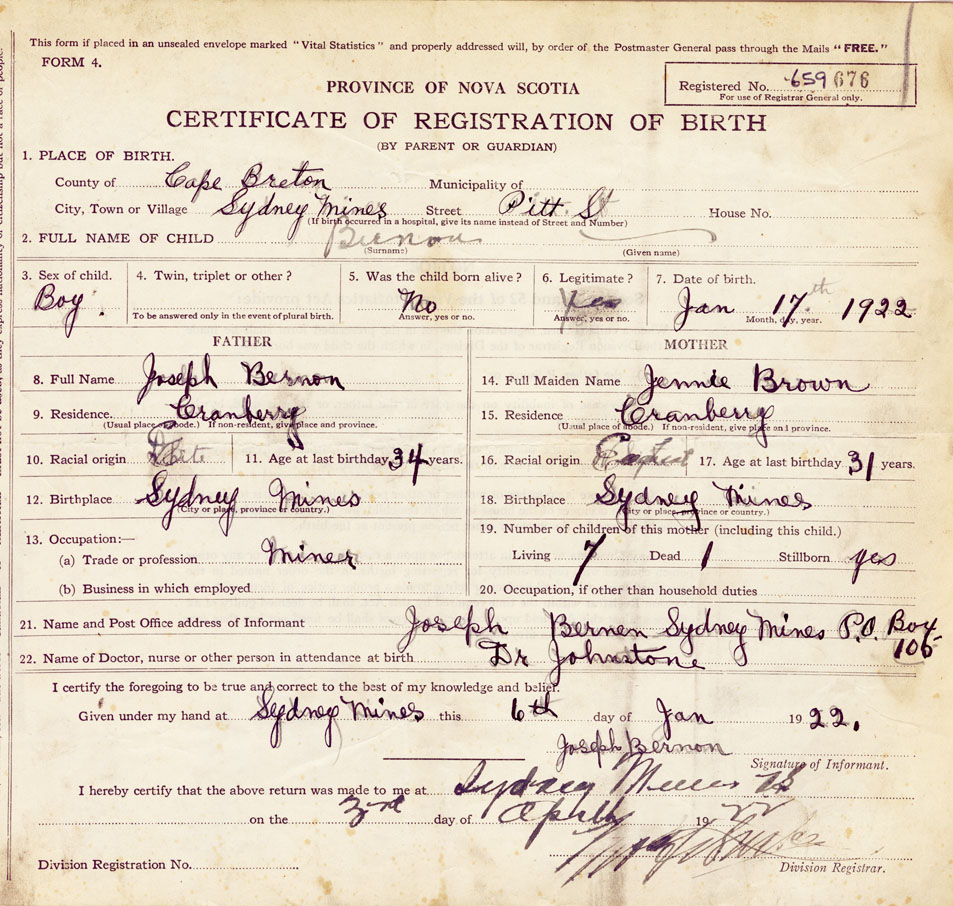 This form if placed in an unsealed envelope marked "Vital Statistics" and properly addressed will, by order of the Postmaster General pass through the Mails "FREE."
FORM 4.
Registered No. 659 676
For use of Registrar General only.
PROVINCE OF NOVA SCOTIA
CERTIFICATE OF REGISTRATION OF BIRTH
(BY PARENT OR GUARDIAN)
1. PLACE OF BIRTH.
County of Cape Breton Municipality of
City, Town or Village Sydney Mines Street Pitt St House No.
(If birth occurred in a hospital, give its name instead of Street and Number)
2. FULL NAME OF CHILD Bernon
(Surname) (Given name)
3. Sex of child. 4. Twin, triplet or other? 5. Was the child born alive? 6. Legitimate? 7. Date of birth.
Boy No Yes Jan 17th 1922
To be answered only in the event of plural birth. Answer, yes or no. Answer, yes or no. Month, day, year.
FATHER MOTHER
8. Full Name Joseph Bernon 14. Full Maiden Name Jennie Brown
9. Residence. Cranberry 15. Residence Cranberry
(Usual place of abode.) If non-resident, give place and province. (Usual place of abode.) If non-resident, give place and province.
10. Racial origin 11. Age at last birthday 34 years. 16. Racial origin 17. Age at last birthday 31 years.
12. Birthplace Sydney Mines 18. Birthplace Sydney Mines
(City or place, province or country.) (City or place, province or country.)
13. Occupation:— 19. Number of children of this mother (including this child.)
(a) Trade or profession Miner Living 7 Dead 1 Stillborn yes
(b) Business in which employed 20. Occupation, if other than household duties
21. Name and Post Office address of Informant Joseph Bernen Sydney Mines P.O. Box 105
22. Name of Doctor, nurse or other person in attendance at birth Dr Johnstone
I certify the foregoing to be true and correct to the best of my knowledge and belief.
Given under my hand at Sydney Mines this 6th day of Jan 1922.
Joseph Bernon
Signature of Informant.
I hereby certify that the above return was made to me at Sydney Mines NS
on the 3rd day of April 1922
Division Registration No. Division Registrar.